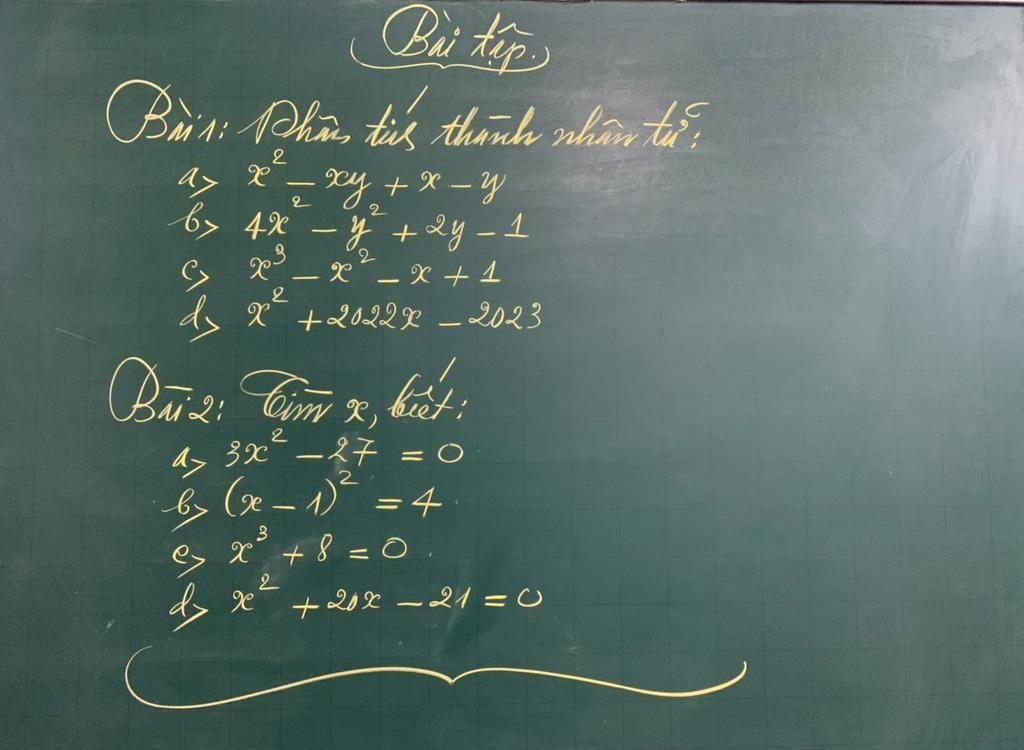 Bài tập.
Bài 1: Phân tích thành nhân tử:
a> x² - xy + x - y
b> 4x² - y² + 2y - 1
c> x³ - x² - x + 1
d> x² + 2022x - 2023
Bài 2: Tìm x, biết:
a> 3x² - 27 = 0
b> (x - 1)² = 4
c> x³ + 8 = 0
d> x² + 20x - 21 = 0